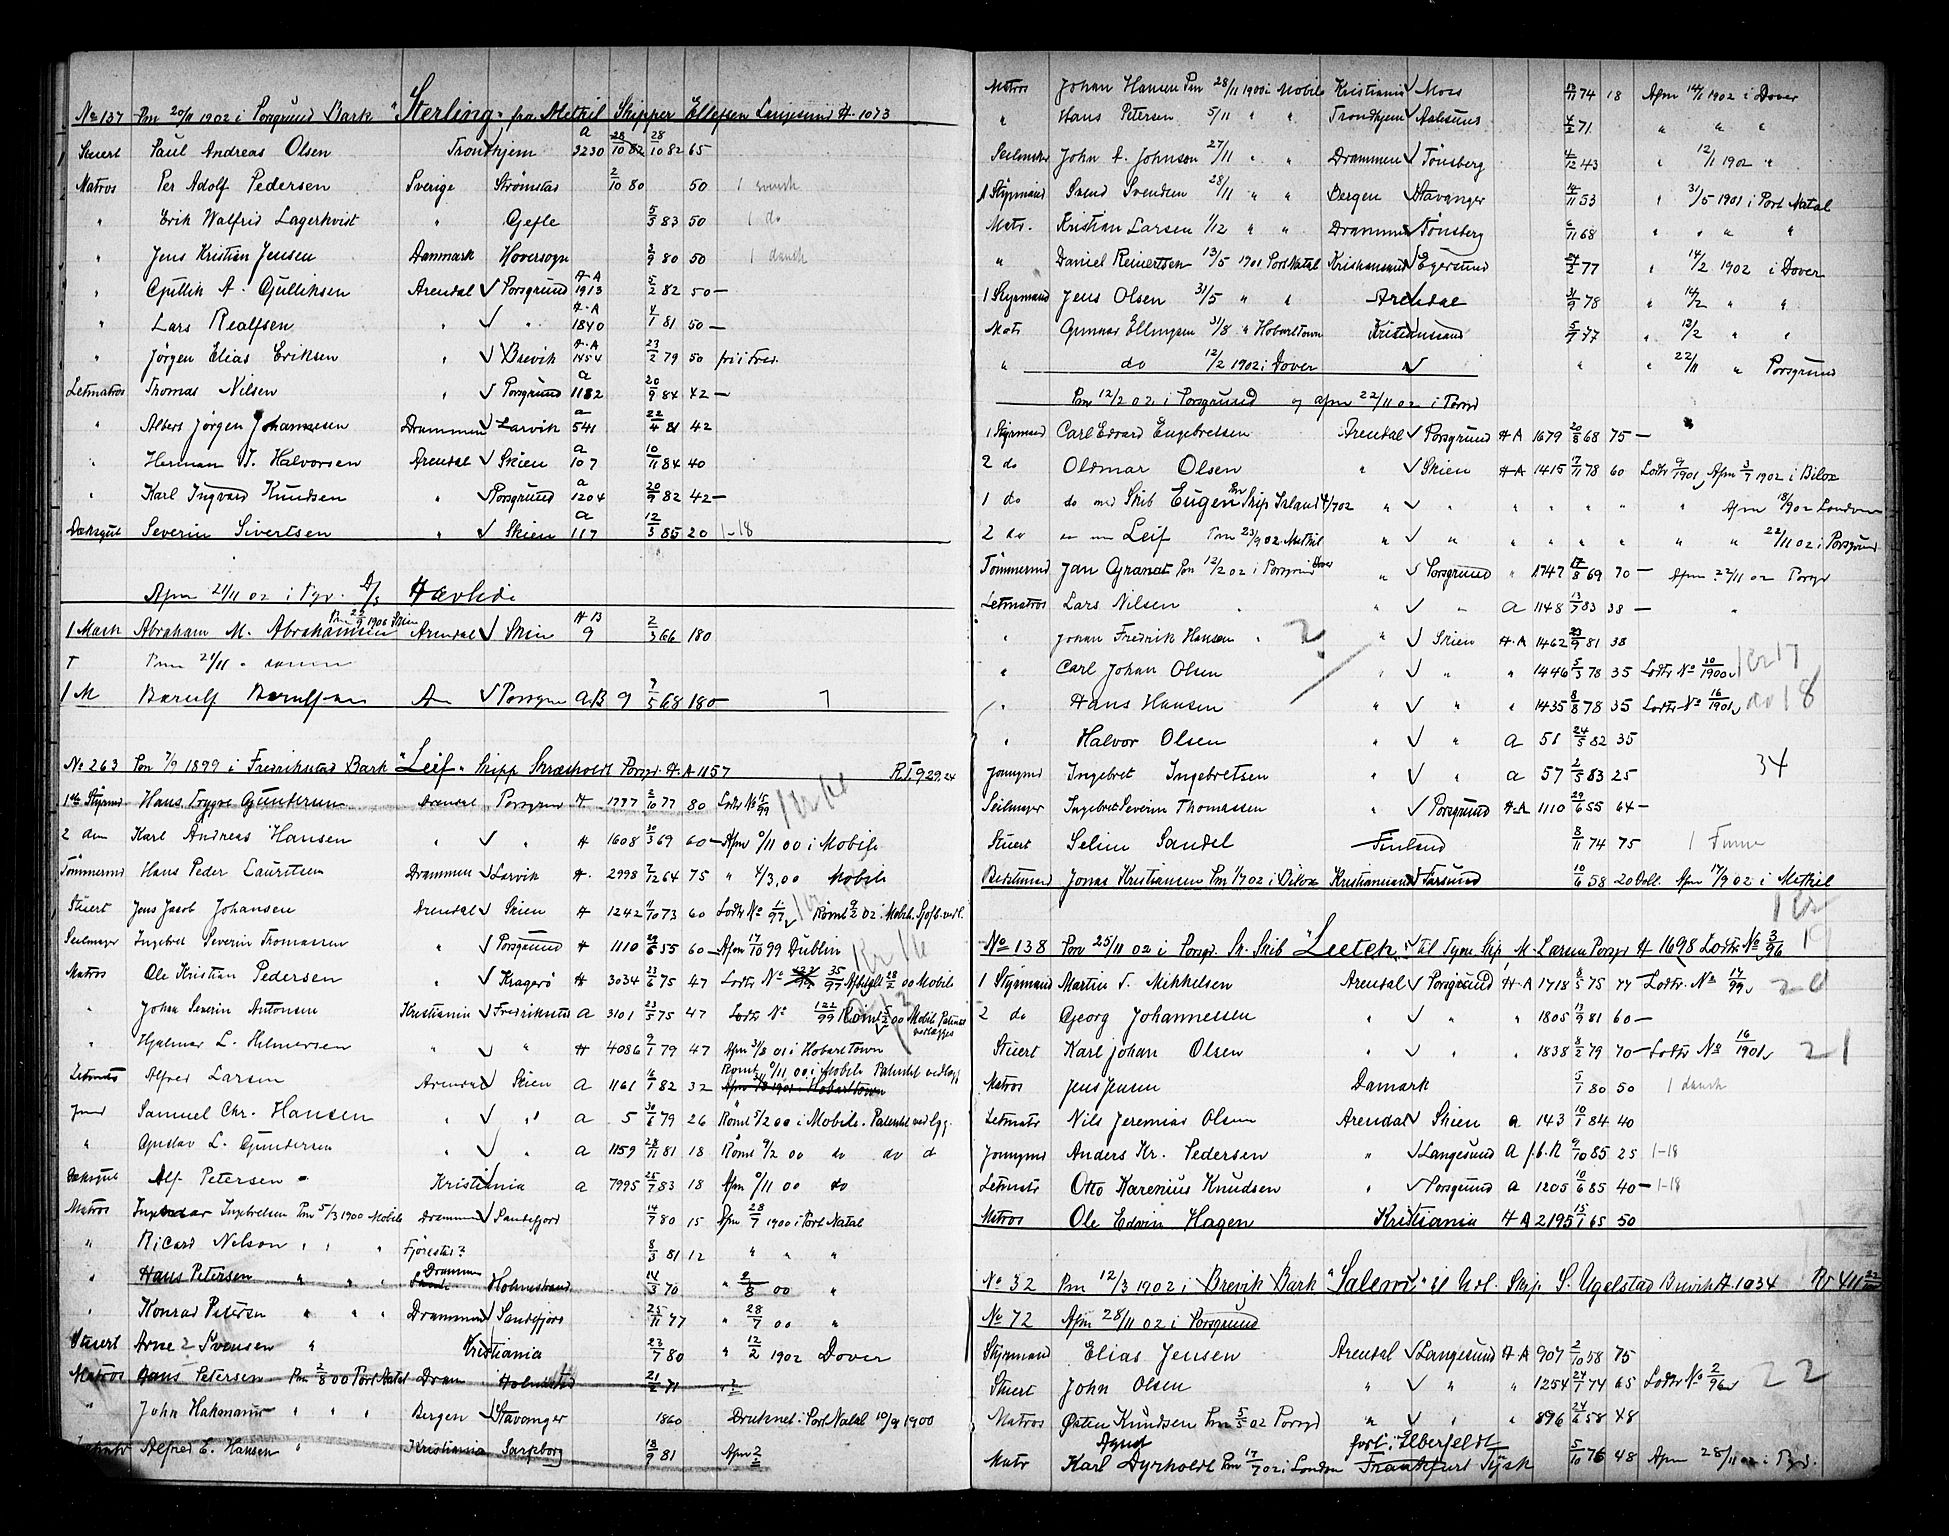 No 137 Pm 20/11 1902 i Porsgrund Bark "Sterling" fra Methil Skipper Ellefsen Langesund A. 1073
Stuert Paul Andreas Olsen Trondhjem a 3230 28/10 82 28/10 82 65
Matros Per Adolf Pedersen Sverige Strømstad 2/10 80 50 1 svensk
" Erik Walfrid Lagerkvist " Gefle 5/3 83 50 1 do
" Jens Kristian Jensen Danmark Hoversogn 3/9 80 50 1 dansk
" Gullik A. Gulliksen Arendal Porsgrund A-A 1913 5/2 82 50 —
" Lars Realfsen " " A-A 1840 4/1 81 50 —
" Jørgen Elias Eriksen " Brevik A-A 1454 23/2 79 50 fri i Fred.
Letmatros Thomas Nilsen " Porsgrund a 1182 20/9 84 42 —
" Albert Jørgen Johannesen Drammen Larvik a 541 22/4 81 42
" Herman J. Halvorsen Arendal Skien a 107 10/11 84 40
" Karl Ingvard Knudsen " Porsgrund a 1204 20/9 82 42 —
Dæksgut Severin Sivertsen " Skien a 117 12/3 85 20 1-18
Afm 21/11 02 i Pgr. D/S Havlide
1 Mask Abraham M. Abrahamsen Arendal Skien A B 9 2/3 66 180
Pm 21/11
1 M Barulf Barulfsen Ar Porsgrun a.B 9 7/5 68 180 —
No 263 Pm 7/9 1899 i Fredrikstad Bark "Leif" Skipp Porsgr. A.A 1157 R.T. 929.24
1ste Styrmd Hans Trygve Gundersen Arendal Porsgrun A 1777 2/10 77 80 Lodts No 15/99
2 den Karl Andreas Hansen " " A 1608 30/3 69 60 — Afm 9/11 00 i Mobile
Tømmermd Hans Peder Lauritsen Drammen Larvik A. 2998 7/12 64 75 " 4/3.00 Mobile
Stuert Jens Jacob Johansen Arendal Skien A 1242 11/10 73 60 Lodts No 11/97 Rømt 9/2 02 i Mobile
Seilmager Ingebret Severin Tromassen " Porsgrund A 1110 29/6 55 60 — Afm 17/10 99 Dublin
Matros Ole Kristian Pedersen " Kragerø A 3034 23/6 75 47 Lodts No 35/97 00 Mobile
" Johan Severin Antonsen Kristiania Fredrikstad a 3101 23/5 75 47 Lodts No 122/99 Rømt 5/2 00 Mobile
" Hjalmar L. Hilmersen " " A 4086 9/1 79 47 Afm 31/8 01 i Hobart town
Letmats Alfred Larsen Arendal Skien a 1161 16/1 82 32 Rømt 9/11 00 i Mobile Patentet vedlagt
Afm 31/8 1901 Hobarttown
Jnmd Samuel Chr. Hansen " " a 5 30/6 79 26 Rømt 5/2 00 i Mobile. Patentet vedlgg.
" Gustav L. Gundersen " " a 1159 28/11 81 18 Rømt 9/2 00 do do d
Dæksgut Alf Petersen Kristiania a 7995 25/7 83 18 Afm 9/11 00 do
Matros Ingebretsen Pm 5/3 1900 Mobile Drammen Sandefjord 14/7 80 15 Afm 28/7 1900 i Port Natal
" Ricard Nelson " " " 8/3 81 12 " " "
" Hans Petersen " " " Drammen Holmestrand 14/3 70 " 2/8 00 "
" Konrad Petersen " " " Drammen Sandefjord 25/11 77 " 28/7 00 "
Stuert Arne Svensen " Kristiania 23/7 80 " 12/2 1902 Dover
Matros Hans Petersen Pm 2/8 00 Port Natal Dram Holmestd 21/2 71 " ?
" John Hakonarsen " " " Bergen Stavanger 1860 Druknet i Port Natal 10/9 1900
Alfred E. Hansen " Kristiania Sarpborg 18/9 81 Afm ?
Matros Johan Hansen Pm 28/11 1900 i Mobile Kristiania Moss 12/11 74 18 Afm 14/1 1902 i Dover
" Hans Petersen 5/11 " " Trondhjem Aalesund 4/2 71 " " "
Seilmaker John A. Johnson 27/11 " " Drammen Tønsberg 4/12 43 " 12/1 1902 "
1 Styrmand Svend Svendsen 28/11 " " Bergen Stavanger 14/11 53 " 31/5 1901 i Port Natal
Mats. Kristian Larsen 1/12 " " Drammen Tønsberg 6/11 68 " " " "
" Daniel Reinertsen 13/5 1901 Port Natal Kristiansand Egersund 24/2 77 " 14/2 1902 i Dover
1 Styrmand Jens Olsen 31/5 " " Arendal 3/9 78 " 14/2 " "
Mats Gunnar Ellingsen 31/8 " Hobarttown Kristiansand 5/9 77 " 12/2 " "
" do 12/2 1902 i Dover " " 22/11 " Porsgrund
Pm 12/2 02 i Porsgrund og afm 22/11 02 i Porsgrd
1 Styrmand Carl Edvard Engebretsen Arendal Porsgrund A-A 1679 20/8 68 75 —
2 do Oldmar Olsen " Skien A-A 1415 17/11 78 60 Lodts 9/1901, Afm 3/7 1902 i Biloxi
1 do do med Skib Eugen Pm Ship Island 4/7 02 " " " " " " Afm 18/9 02 London
2 do Leif Pm 23/9 02 Methil " " " " " " " " 22/11 02 i Porsgrund
Tømmermd Jan Granat Pm 12/2 02 i Porsgrund Dover " Porsgrund " 1747 17/8 69 70 — Afm 22/11 02 Porsgr
Letmatros Lars Nilsen " " " a 1148 13/7 83 38 — "
" Johan Fredrik Hansen " " Skien A-A 1462 23/9 81 38
" Carl Johan Olsen " " " 1446 5/3 78 35 Lodts No 10/1900 1 Kr 17
" Hans Hansen " " " 1435 8/8 78 35 Lodts No 16/1901 do 18
" Halvor Olsen " " a 51 24/5 82 35
Jomgmd Ingebret Ingebretsen " " a 57 2/5 83 25 34
Seilmager Ingebret Severin Thomassen " Porsgrund A-A 1110 29/6 55 64 —
Stuert Selim Sandel Finland 8/11 74 75 1 Finne
Bedstmand Jonas Kristiansen Pm 1/7 02 i Biloxi Kristiansand Farsund 10/6 58 20 Doll. Afm 17/9 02 i Methil
No 138 Pm 25/11 02 i Porsgr. Sk. Skib "Leetch" til Tyne Skip. M. Larsen Porsgr A 1698 Lodts No 3/96 19
1 Styrmand Martin T. Mikkelsen Arendal Porsgrund A-A 1718 8/5 75 77 — Lodts. No 14/99 20
2 do Georg Johannessen " " " 1805 13/9 81 60 —
Stuert Karl Johan Olsen " " " 1838 8/2 79 70 — Lodts No 16/1901 21
Matros Jens Jensen Damark 5/1 80 50 1 dansk
Letmats Nils Jeremias Olsen Arendal Skien a 143 10/1 84 40
Jomgmd Anders Kr. Pedersen " Langesund a f.b.R 9/10 85 25 1-18
Letmats Otto Karenius Knudsen " Porsgrund a 1205 10/6 85 40 — 1-18
Matros Ole Edvin Hagen Kristiania A A 2195 15/1 65 50
No 32 Pm 12/3 1902 i Brevik Bark "Salem" til Hol. Skip. S. Ugelstad Brevik A 1034
No 72 Afm 28/11 02 i Porsgrund
Styrmand Elias Jensen Arendal Langesund A-A 907 2/10 58 75
Stuert John Olsen " " " 1254 24/1 74 65 Lodts No 2/96 22
Matros Østen Knudsen Pm 5/5 02 Porsgd " " " 896 24/6 58 48
Matr August Karl Dyrholdt Pm 17/7 02 i London født i Elberfeldt Frankfurt Tysk 5/10 76 48 Afm 28/11 02 i Pgd.